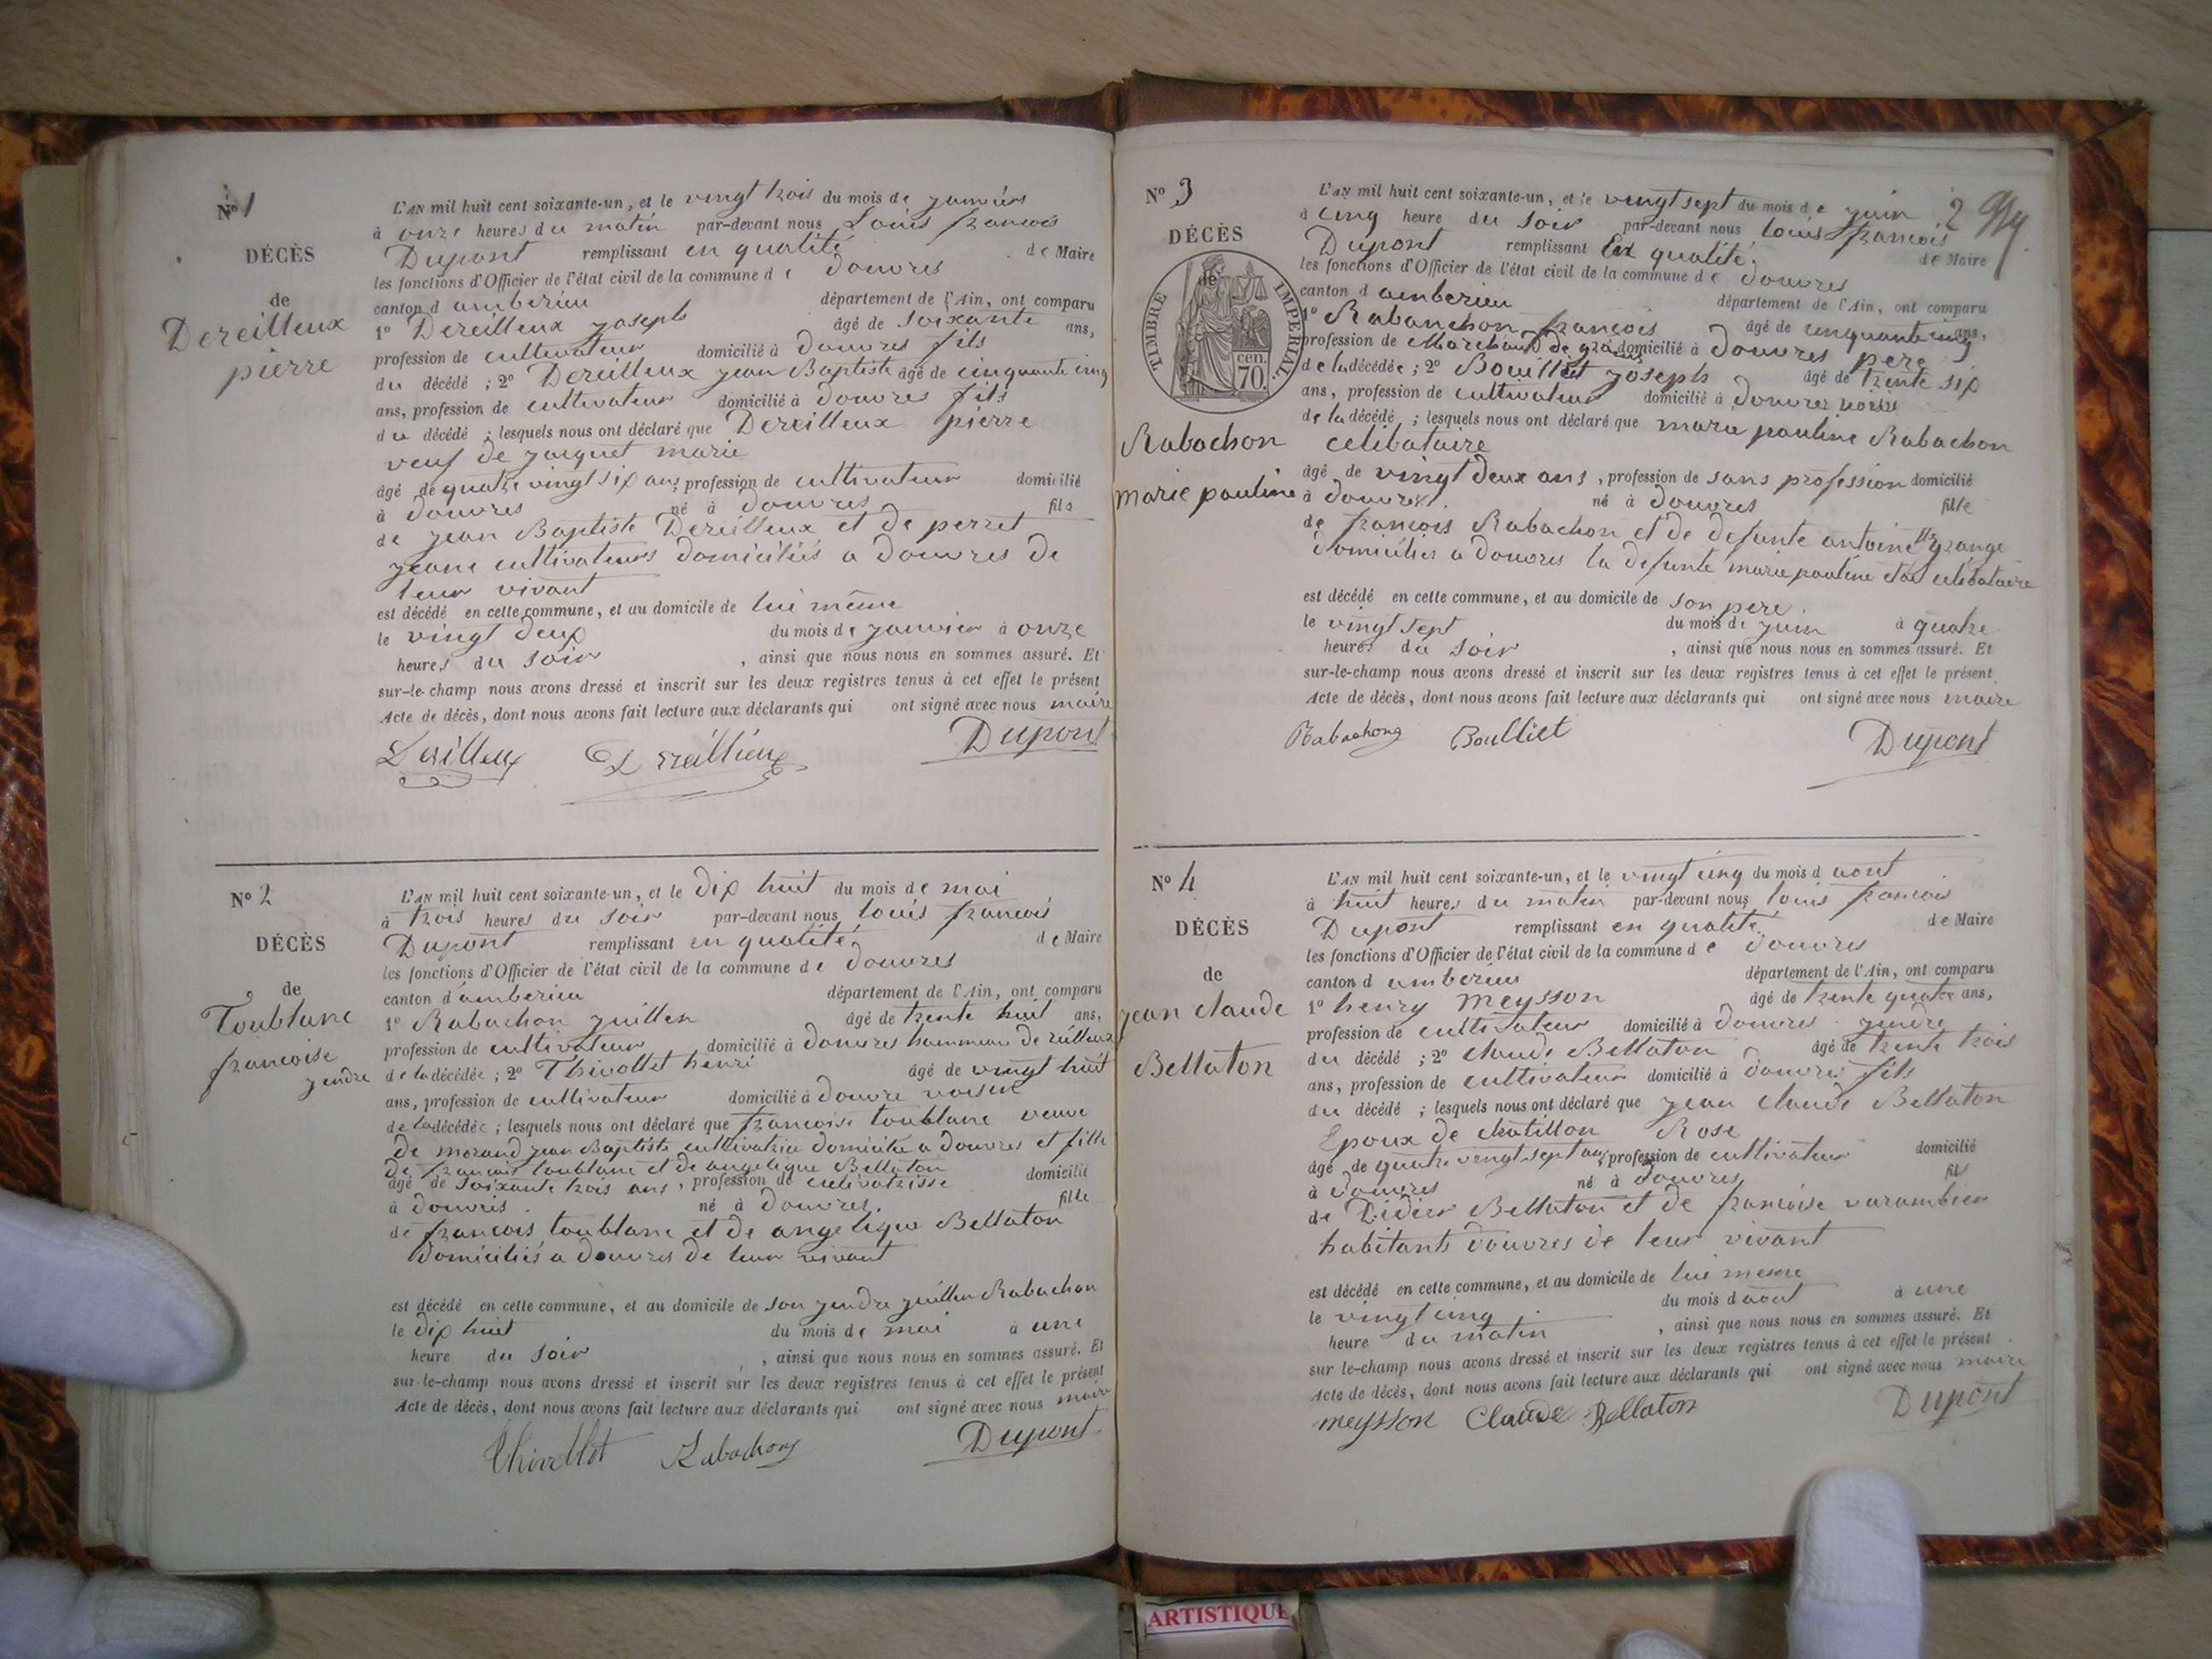 N° 1
DÉCÈS
de
Dereilleux
pierre
L'AN mil huit cent soixante-un, et le vingt trois du mois de janvier
à onze heures du matin par-devant nous Louis francois
Dupont remplissant en qualité de Maire
les fonctions d'Officier de l'état civil de la commune de douvres
canton d amberieu département de l'Ain, ont comparu
1° Dereilleux joseph âgé de soixante ans,
profession de cultivateur domicilié à douvres fils
du décédé ; 2° Dereilleux jean Baptiste âgé de cinquante cinq
ans, profession de cultivateur domicilié à douvres fils
du décédé ; lesquels nous ont déclaré que Dereilleux pierre
veuf de jacquet marie
âgé de quatre vingt six ans, profession de cultivateur domicilié
à douvres né à douvres fils
de jean Baptiste Dereilleux et de perret
jeane cultivateurs domiciliés a douvres de
leur vivant
est décédé en cette commune, et au domicile de lui même
le vingt deux du mois de janvier à onze
heures du soir , ainsi que nous nous en sommes assuré. Et
sur-le-champ nous avons dressé et inscrit sur les deux registres tenus à cet effet le présent
Acte de décès, dont nous avons fait lecture aux déclarants qui ont signé avec nous maire
Dupont
N° 2
DÉCÈS
de
Toublanc
francoise
L'AN mil huit cent soixante-un, et le dix huit du mois de mai
à trois heures du soir par-devant nous louis francois
Dupont remplissant en qualité de Maire
les fonctions d'Officier de l'état civil de la commune de douvres
canton d'amberieu département de l'Ain, ont comparu
1° Rabachon juillen âgé de trente huit ans,
profession de cultivateur domicilié à douvres
de la décédée ; 2° Thivollet henri âgé de vingt huit
ans, profession de cultivateur domicilié à douvre voisin
de la décédée ; lesquels nous ont déclaré que francoise toublanc veuve
de morand jean Baptiste cultivatrice domicilié a douvres et fille
de francois toublanc et de angelique Bellaton domicilié
âgé de soixante trois ans, profession de cultivatrisse
à douvres né à douvres fille
de francois toublanc et de angelique Bellaton
domiciliés a douvres de leur vivant
est décédé en cette commune, et au domicile de son jendre juillen Rabachon
le dix huit du mois de mai à une
heure du soir , ainsi que nous nous en sommes assuré. Et
sur-le-champ nous avons dressé et inscrit sur les deux registres tenus à cet effet le présent
Acte de décès, dont nous avons fait lecture aux déclarants qui ont signé avec nous maire
Thivollet Rabachon Dupont
N° 3
DÉCÈS
de
TIMBRE IMPÉRIAL
cen.
70.
Rabachon
marie pauline
2
L'AN mil huit cent soixante-un, et le vingt sept du mois de juin
à cinq heure du soir par-devant nous louis francois
Dupont remplissant En qualité de Maire
les fonctions d'Officier de l'état civil de la commune de douvres
canton d amberieu département de l'Ain, ont comparu
1° Rabanchon francois âgé de cinquante cinq ans,
profession de Marchand de domicilié à douvres pere
de la décédée ; 2° Bouilliet joseph âgé de trente six
ans, profession de cultivateur domicilié à douvres
de la décédé ; lesquels nous ont déclaré que marie pauline Rabachon
celibataire
âgé de vingt deux ans, profession de sans profession domicilié
à douvres né à douvres fille
de francois Rabachon et de defunte antoinette grange
domiciliés a douvres la defunte marie pauline etai celibataire
est décédé en cette commune, et au domicile de son pere
le vingt sept du mois de juin à quatre
heures du soir , ainsi que nous nous en sommes assuré. Et
sur-le-champ nous avons dressé et inscrit sur les deux registres tenus à cet effet le présent
Acte de décès, dont nous avons fait lecture aux déclarants qui ont signé avec nous maire
Rabachong Boulliet Dupont
N° 4
DÉCÈS
de
jean claude
Bellaton
L'AN mil huit cent soixante-un, et le vingt cinq du mois d aout
à huit heures du matin par-devant nous louis francois
Dupont remplissant en qualité de Maire
les fonctions d'Officier de l'état civil de la commune de douvres
canton d amberieu département de l'Ain, ont comparu
1° henry Meysson âgé de trente quatre ans,
profession de cultivateur domicilié à douvres jendre
du décédé ; 2° claude Bellaton âgé de trente trois
ans, profession de cultivateur domicilié à douvres fils
du décédé ; lesquels nous ont déclaré que jean claude Bellaton
Epoux de chatillon Rose
âgé de quatre vingt sept ans, profession de cultivateur domicilié
à douvres né à douvres fils
de Didier Bellaton et de francoise varambier
habitants douvres de leur vivant
est décédé en cette commune, et au domicile de lui meme
le vingt cinq du mois d aout à une
heure du matin , ainsi que nous nous en sommes assuré. Et
sur-le-champ nous avons dressé et inscrit sur les deux registres tenus à cet effet le présent
Acte de décès, dont nous avons fait lecture aux déclarants qui ont signé avec nous maire
meysson Claude Bellaton Dupont
ARTISTIQUE